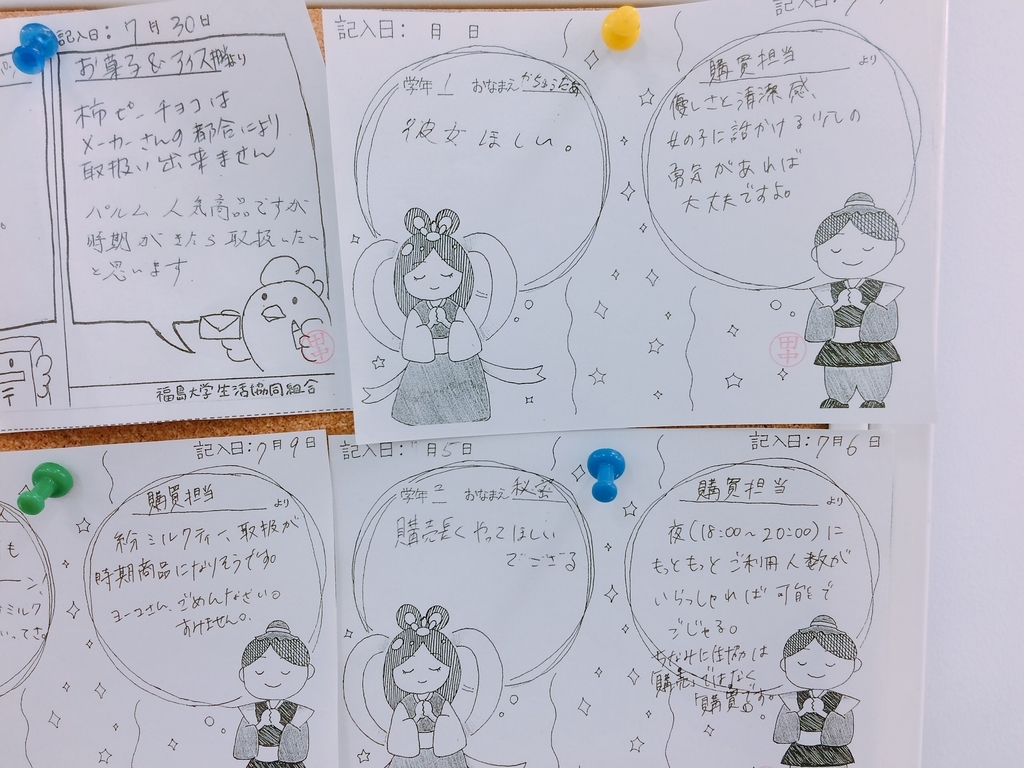 記入日: 7月30日
お菓子&アイス担当より
柿ピーチョコは
メーカーさんの都合により
取扱い出来ません
パルム 人気商品ですが
時期がきたら取扱いたい
と思います
田中
福島大学生活協同組合
記入日: 月 日
学年 1 おなまえ
彼女ほしい。
購買担当 より
優しさと清潔感、
女の子に話かける少しの
勇気があれば
大丈夫ですよ。
田中
記入日: 7月9日
購買担当 より
粉ミルクティー、取扱が
時期商品になりそうです。
ヨーコさん、ごめんなさい。
すみません。
も
ーン!
ミルク
記入日: 7月5日
学年 2 おなまえ 秘密
購売長くやってほしい
でござる
記入日: 7月6日
購買担当 より
夜(18:00~20:00)に
もっともっとご利用人数が
いらっしゃれば可能で
ごじゃる。
ちなみに生協は
「購売」ではなく
「購買」です。